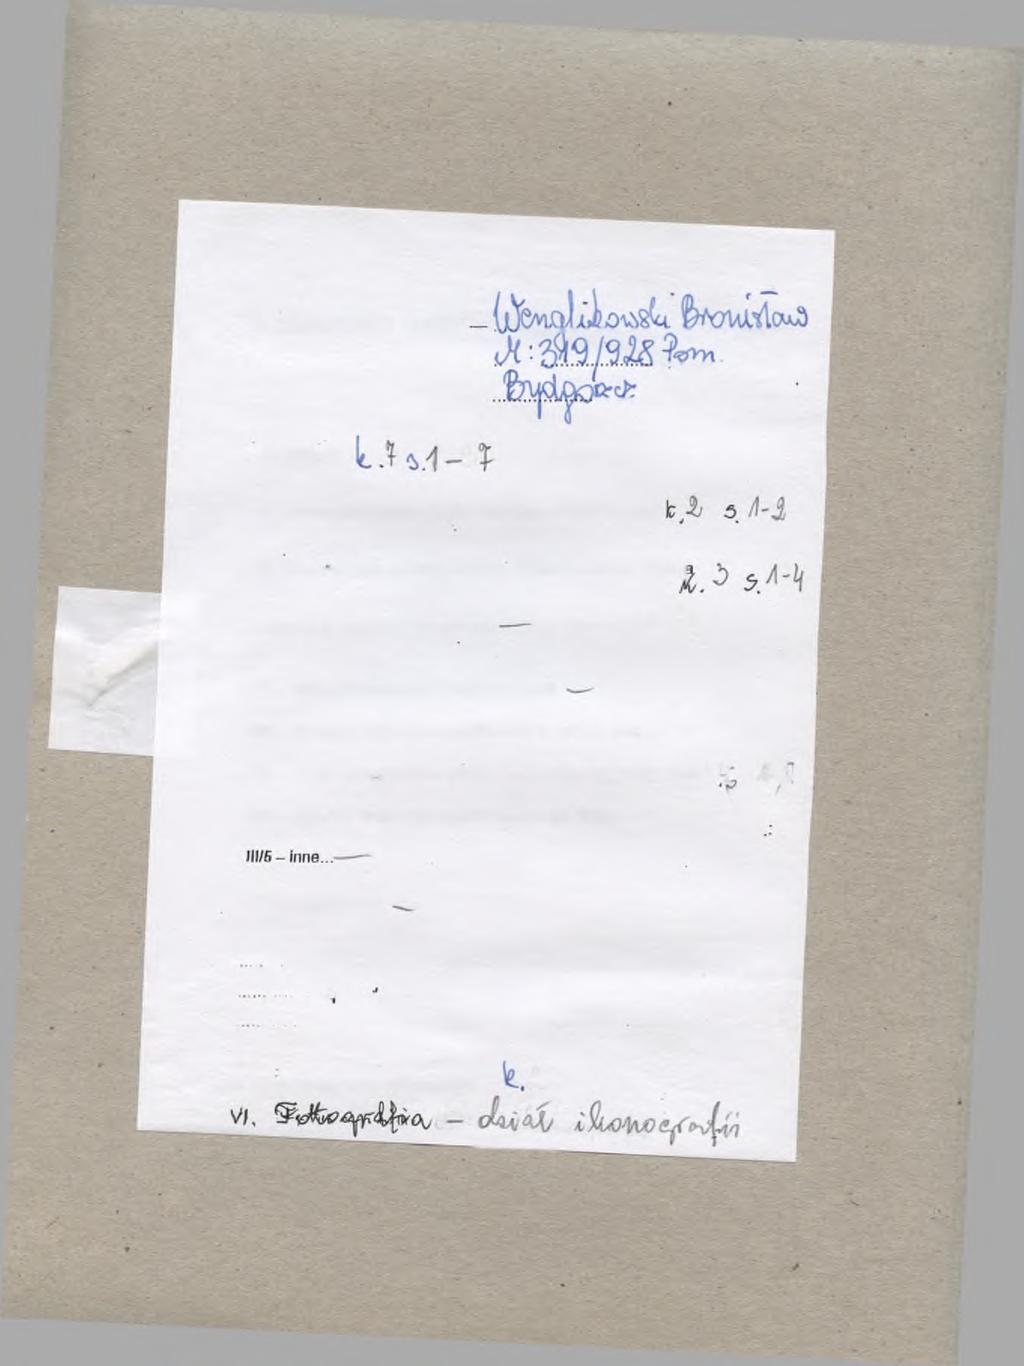 – Wenglikowski Bronisław
M: 319/928 Pom.
Bydgoszcz
k.7 s.1 – 7
k.2 s. 1-2
k. 3 s. 1-4
—
—
III/5 – inne...—
—
k.
VI. Fotografia – dział ikonografii